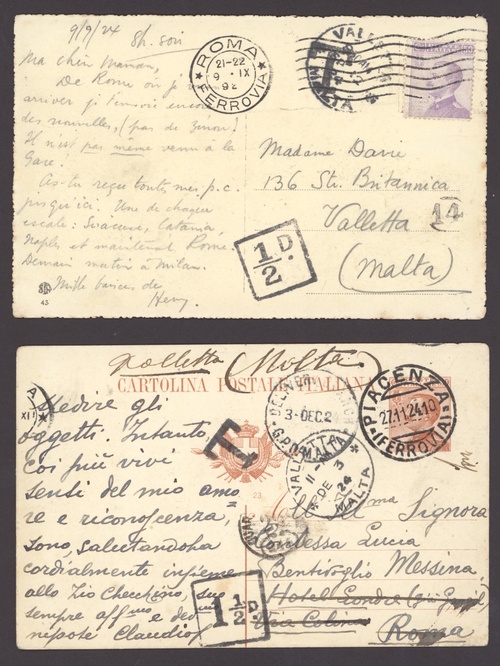 9/9/24 8h. soir
Ma chère Maman,
De Rome où j'
arrive je t'envoie encore
des nouvelles, (pas de
Il n'est pas même venu à la
Gare!
As-tu reçu toutes mes p.c.
jusqu'ici. Une de chaque
escale: Siracuse, Catania,
Naples et maintenant Rome
Demain matin à Milan.
Mille baisers de
Henry.
43
ROMA
FERROVIA
21-22
9 IX
T
VALLETTA
Madame Davie
136 Str. Britannica
Valletta
(Malta)
14
1/2 D.
Valletta (Malta)
CARTOLINA POSTALE ITALIANA
PIACENZA
(FERROVIA)
27.11.24.10
G.P.O. MALTA
3-DEC.2
VALLETTA
11-
DE 3
24
MALTA
T
23
A
XII
gli
oggetti. Intanto,
coi più vivi
sensi del mio amo
re e riconoscenza,
sono, salutandola
cordialmente insieme
allo Zio Checchino, suo
sempre aff.mo e dev.mo
nipote Claudio
Signora
Contessa Lucia
Bentivoglio Messina
Hotel Londre
Via Colonna
Roma
1 1/2 D.